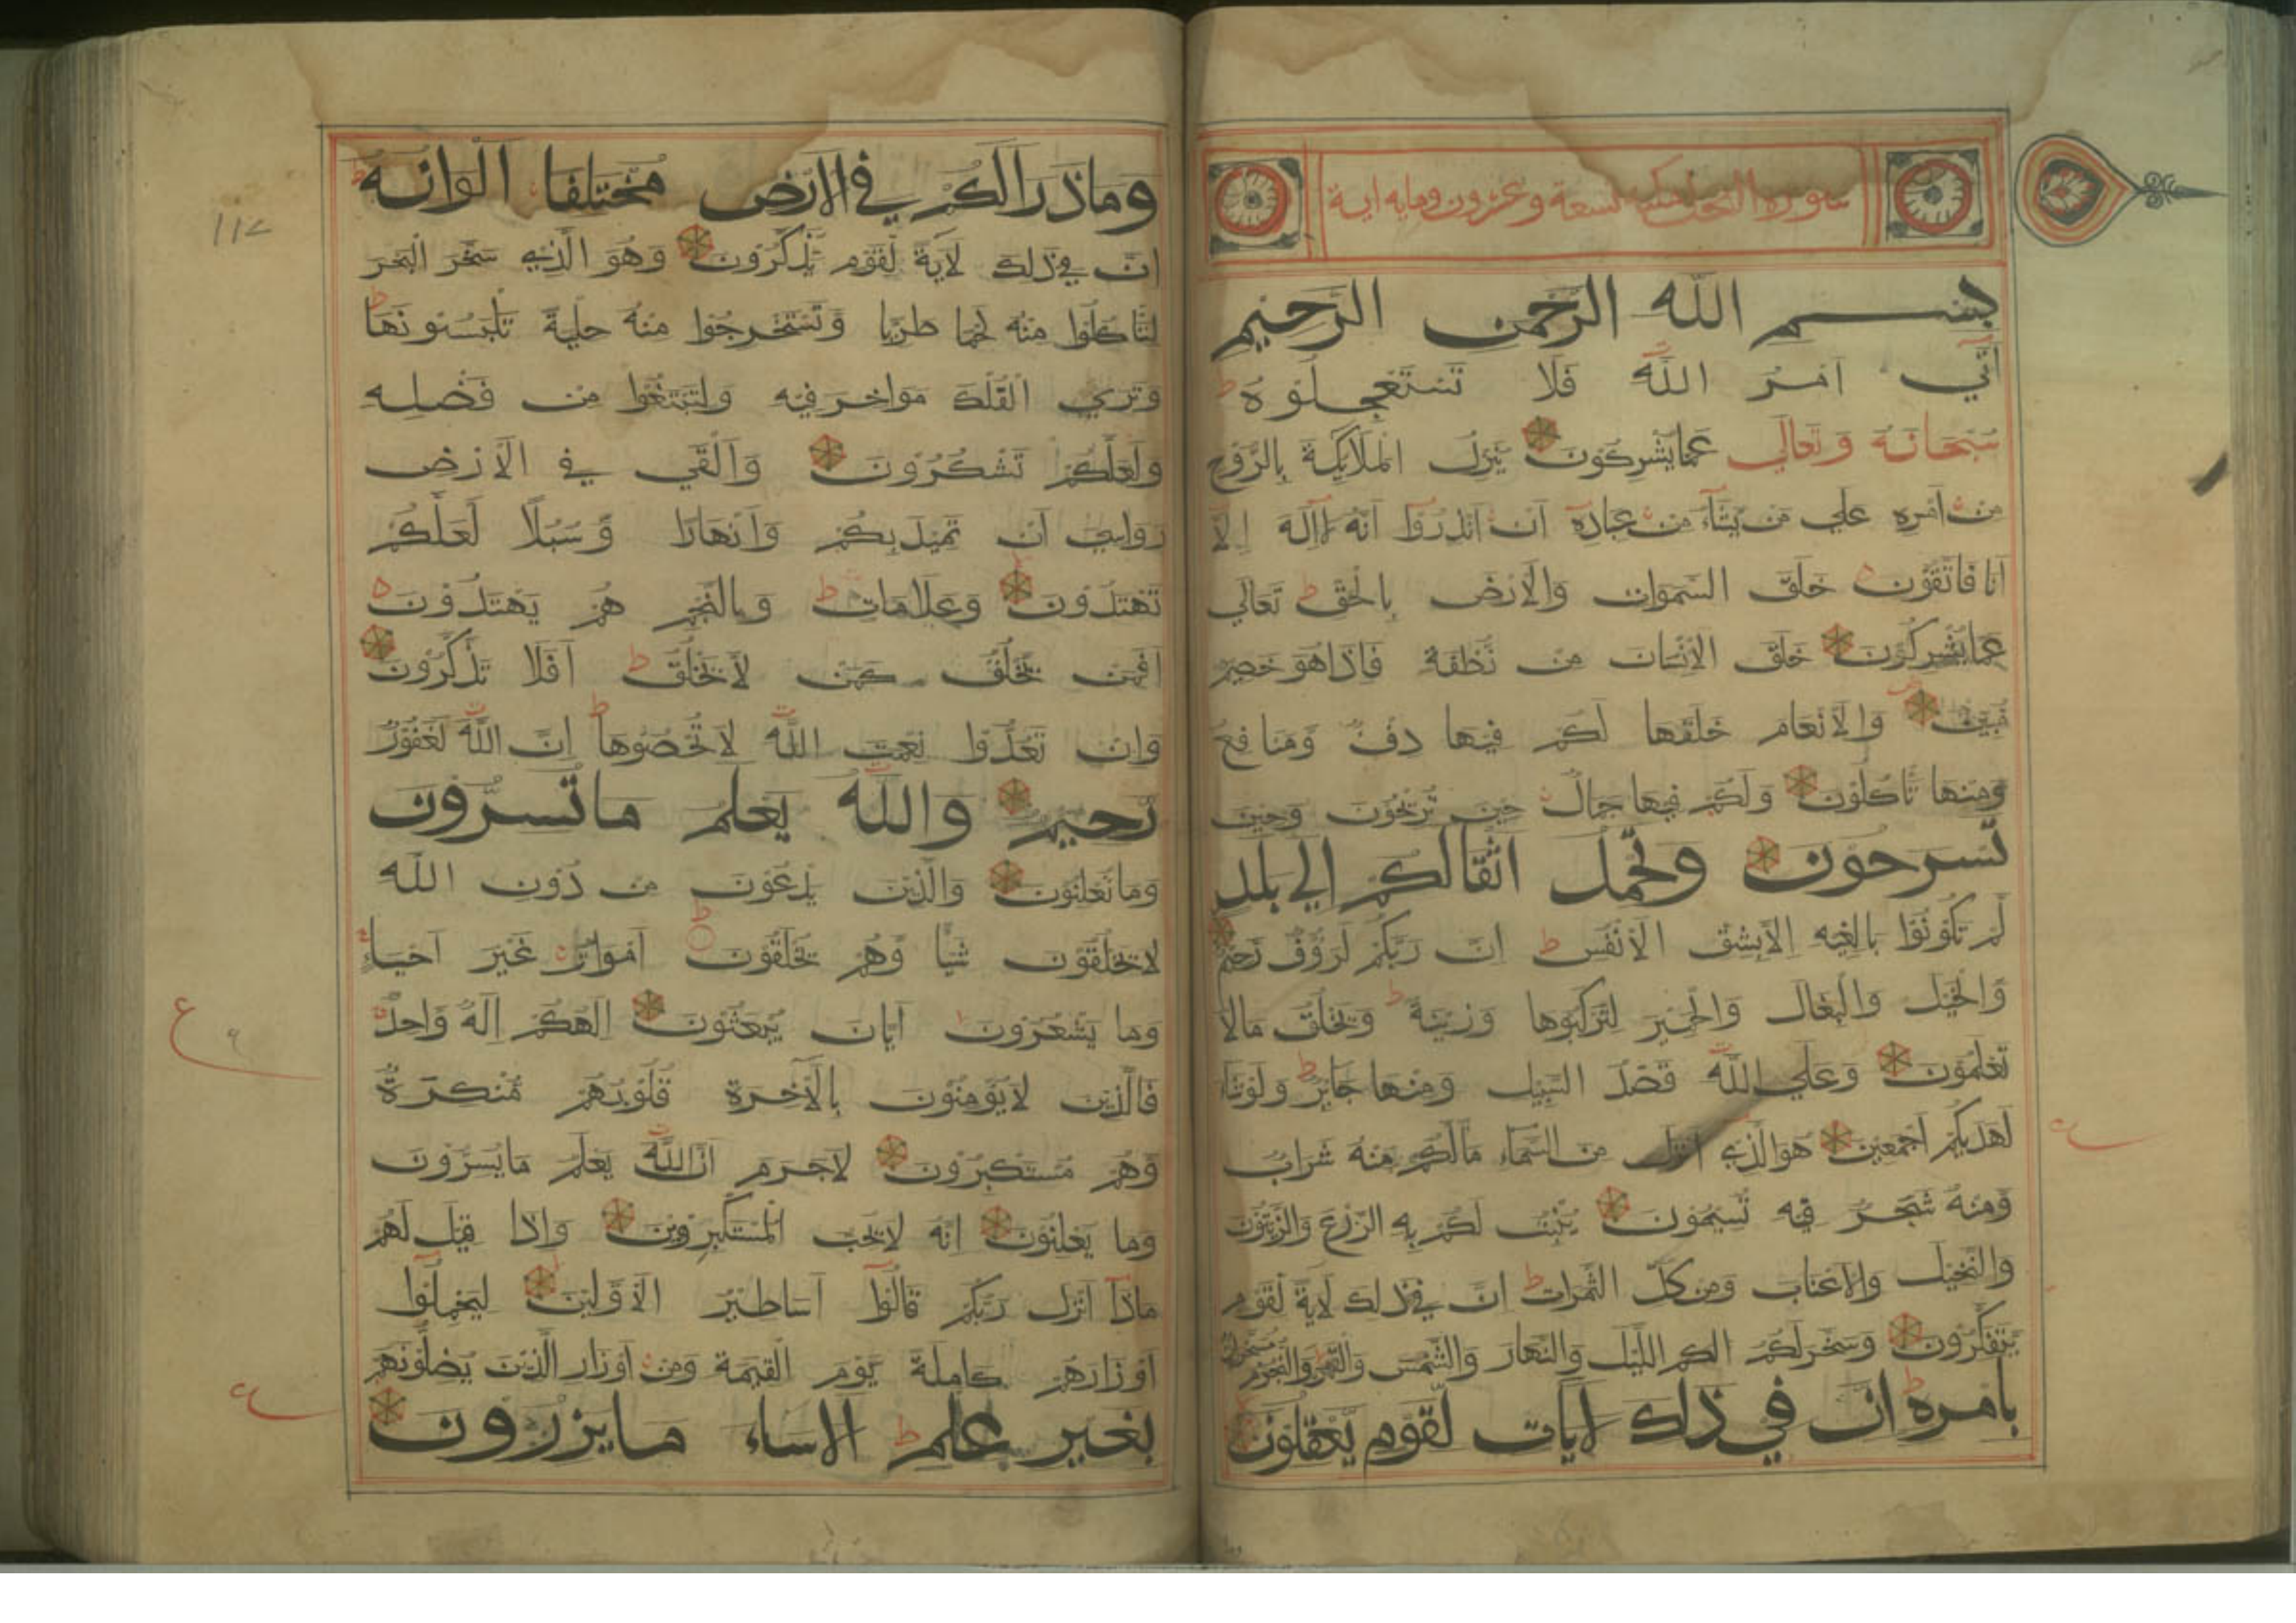 سورة النحل مكية تسعة وعشرون ومایه ایة
بسم الله الرحمن الرحيم
اَتي اَمرُ الله فَلا تَستَعجِلُوهُ ط
سُبحَانَهُ وَتَعَالي عَمايُشرِكونَ يُنَزِلُ الملَايِكةَ بِالرُّوح
من اَمرِهِ علي مَن يَّشآءُ من عِبادِه اَن اَنذِرُوا اَنَّهُ لآاِلهَ اِلآ
اَنا فَاتَّقُون خَلَقَ السَّموات وَالاَرضَ بِالحَقِّ ط تَعَالي
عَمايُشرِكُونَ خَلَقَ الاِنسَانَ مِن نُطفَةٍ فَاِذا هُوَ خَصِيمٌ
مُّبِينٌ وَالاَنعَامَ خَلَقَها لَكُم فيها دِفٌ وَمَنافِعُ
وَمِنها تَاكُلُونَ وَلَكُم فيها جَمالٌ حين تُرِيحُونَ وَحينَ
تَسرحونَ وتحمِلُ اثقالكُم الي بلدٍ
لَم تَكُونُوا بَالِغيه اِلاَّبِشِقِّ الاَنفُسِ ط اِنَّ رَبَّكُم لَرَؤُفٌ رَحيمٌ
وَالخَيلَ وَالبِغالَ وَالحَميرَ لِتَركَبُوها وَزِينَةً ط وَيَخلُقُ مَالاَ
تَعلَمُونَ وَعَلي اللّهِ قَصدُ السَّبيل وَمِنها جَايرٌ ط وَلَوشَاءَ
لَهَديكُم اَجمَعينَ هُوَالَّذي اَنزَلَ مِنَ السَّماءِ مَاًلَكُم مِنهُ شَرابٌ
وَمِنهُ شَجَرٌ فيه تُسيمُونَ يُنبِتُ لَكُم بِهِ الزَّرعَ وَالزَّيتُونَ
وَالنَّخيلَ وَالاَعنابَ وَمِن كلِّ الثَّمَراتِ ط اِنَّ في ذلِكَ لاَيَةً لِّقَومٍ
يَّتَفَكَّرُونَ وَسَخَّرَلَكُمُ الكم اللَّيلَ وَالنَّهارَ وَالشَّمسَ وَالقَمَرَ وَالنُّجُومُ مُسَخَّراتٌ
بامره ط انَّ في ذلك لايات لِّقَومٍ يَّعقلونَ
وماذرالكُم في الارض مُختَلِفًا الوانه ط
اِنَّ في ذلِكَ لاَيَةً لِّقَومٍ يَّذَّكَّرُونَ وَهُوَ الَّذي سَخَّرَ البَحرَ
لِتَاكُلُوا مِنهُ لَحما طَريًا وَتَستَخرِجُوا مِنهُ حِليَةً تَلبَسُونَها ط
وَتَري الفُلكَ مَواخِرَ فيه وَلِتَبتَغُوا مِن فَضلِه
وَلَعَلَّكُم تَشكُرُونَ وَاَلقي في الاَرضِ
رَواسِيَ اَن تَميدَ بِكُم وَاَنهارًا وَّسُبُلًا لَعَلَّكُم
تَهتَدُونَ وَعَلاَماتٍ ط وَبِالنَّجمِ هُم يَهتَدُونَ
اَفَمَن يَّخلُقُ كَمَن لاَّيَخلُقُ ط اَفَلا تَذَكَّرُونَ
وَاِن تَعُدُّوا نِعمَتَ اللّهِ لاَتُحصُوها ط اِنَّ اللّهَ لَغَفُورٌ
رَّحيمٌ وَاللّهُ يَعلمُ ماتُسرُّونَ
وَماتُعلِنُونَ وَالَّذينَ يَدعُونَ مِن دُونِ اللّهِ
لاَيَخلُقُونَ شَيًا وَّهُم يُخلَقُونَ ط اَمواتٌ غَيرُ اَحياءٍ
وَما يَشعُرُونَ اَيَّانَ يُبعَثُونَ اِلهُكُم اِلهٌ وَاحِدٌ
فَالَّذينَ لاَيُؤمِنُونَ بِالاَخِرَةِ قُلُوبُهُم مُّنكِرَةٌ
وَّهُم مُستَكبِرُونَ لاَجَرَمَ اَنَّ اللّهَ يَعلَمُ مَايُسِرُّونَ
وَما يُعلِنُونَ اِنَّهُ لاَيُحِبُّ المُستَكبِرينَ وَاِذا قيلَ لَهُم
ماذَا اَنزَلَ رَبُّكُم قَالُوا اَسَاطيرُ الاَوَّلينَ لِيَحمِلُوا
اَوزَارَهُم كَامِلَةً يَومَ القِيمَةِ وَمِن اَوزَارِ الَّذينَ يُضِلُّونَهُم
بغير علمٍ ط الاساء مايزرونَ
ع
١١٢